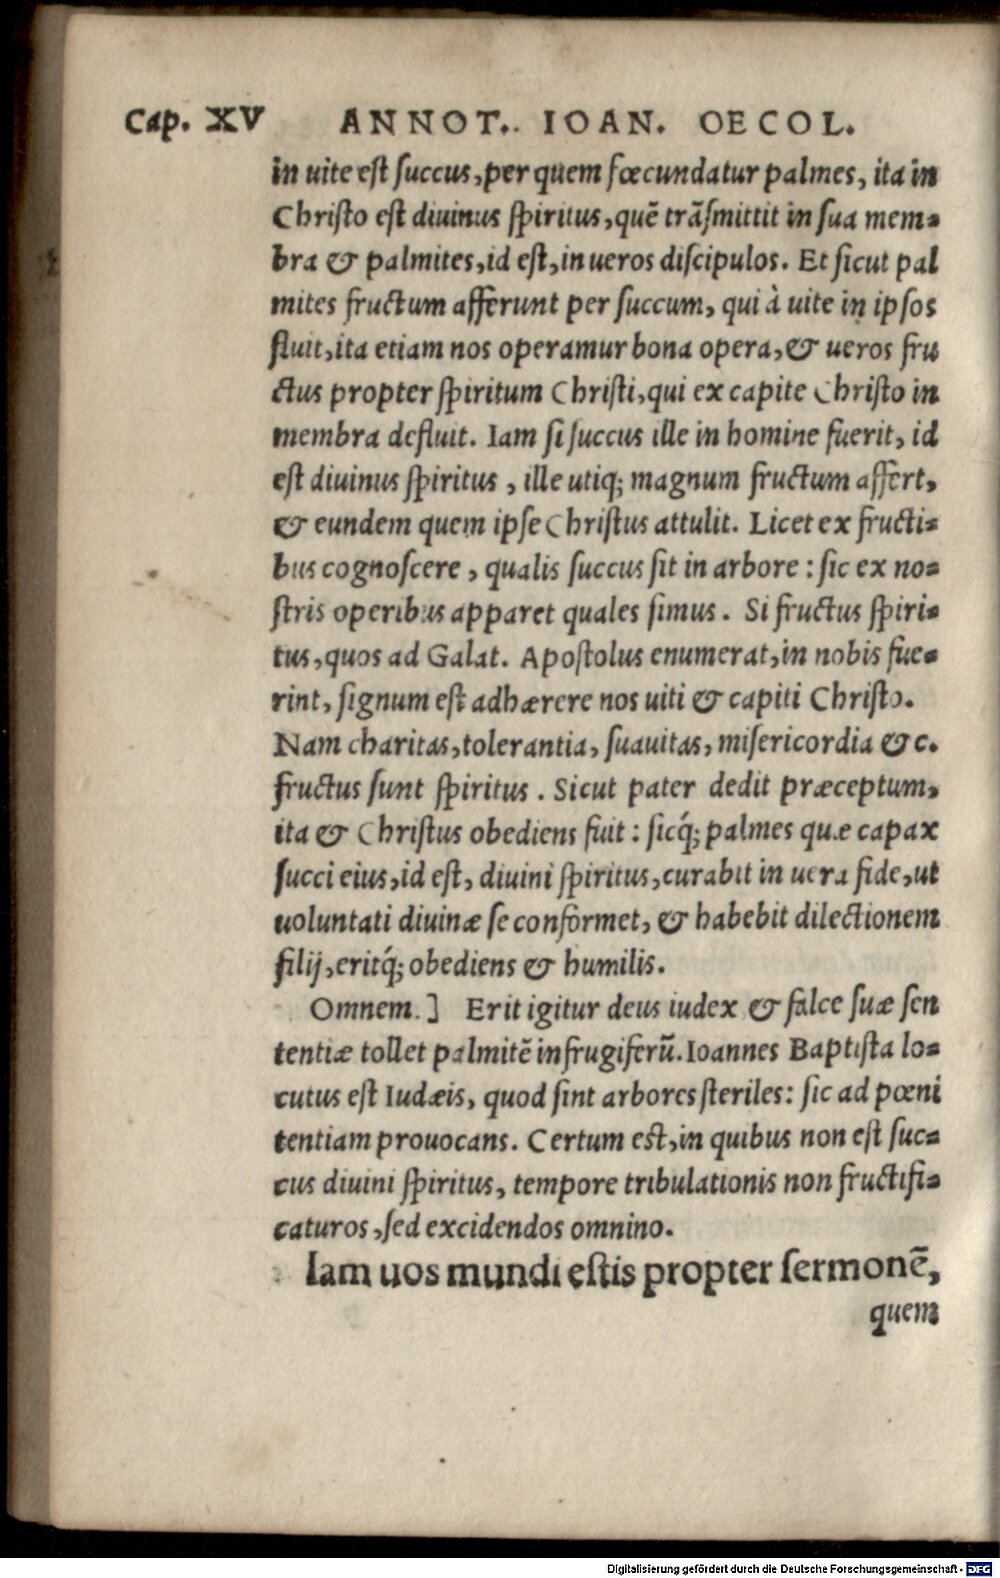 Cap. XV ANNOT. IOAN. OECOL.
in uite est succus, per quem fœcundatur palmes, ita in
Christo est diuinus spiritus, quē trāsmittit in sua mem=
bra & palmites, id est, in ueros discipulos. Et sicut pal
mites fructum afferunt per succum, qui à uite in ipsos
fluit, ita etiam nos operamur bona opera, & ueros fru
ctus propter spiritum Christi, qui ex capite Christo in
membra defluit. Iam si succus ille in homine fuerit, id
est diuinus spiritus, ille utiq; magnum fructum affert,
& eundem quem ipse Christus attulit. Licet ex fructi=
bus cognoscere, qualis succus sit in arbore: sic ex no=
stris operibus apparet quales simus. Si fructus spiri=
tus, quos ad Galat. Apostolus enumerat, in nobis fue=
rint, signum est adhærere nos uiti & capiti Christo.
Nam charitas, tolerantia, suauitas, misericordia &c.
fructus sunt spiritus. Sicut pater dedit præceptum,
ita & Christus obediens fuit: sicq́; palmes quæ capax
succi eius, id est, diuini spiritus, curabit in uera fide, ut
uoluntati diuinæ se conformet, & habebit dilectionem
filij, eritq́; obediens & humilis.
Omnem.] Erit igitur deus iudex & falce suæ sen
tentiæ tollet palmitē infrugiferū. Ioannes Baptista lo=
cutus est Iudæis, quod sint arbores steriles: sic ad pœni
tentiam prouocans. Certum est, in quibus non est suc=
cus diuini spiritus, tempore tribulationis non fructifi=
caturos, sed excidendos omnino.
Iam uos mundi estis propter sermonē,
quem
Digitalisierung gefördert durch die Deutsche Forschungsgemeinschaft - DFG